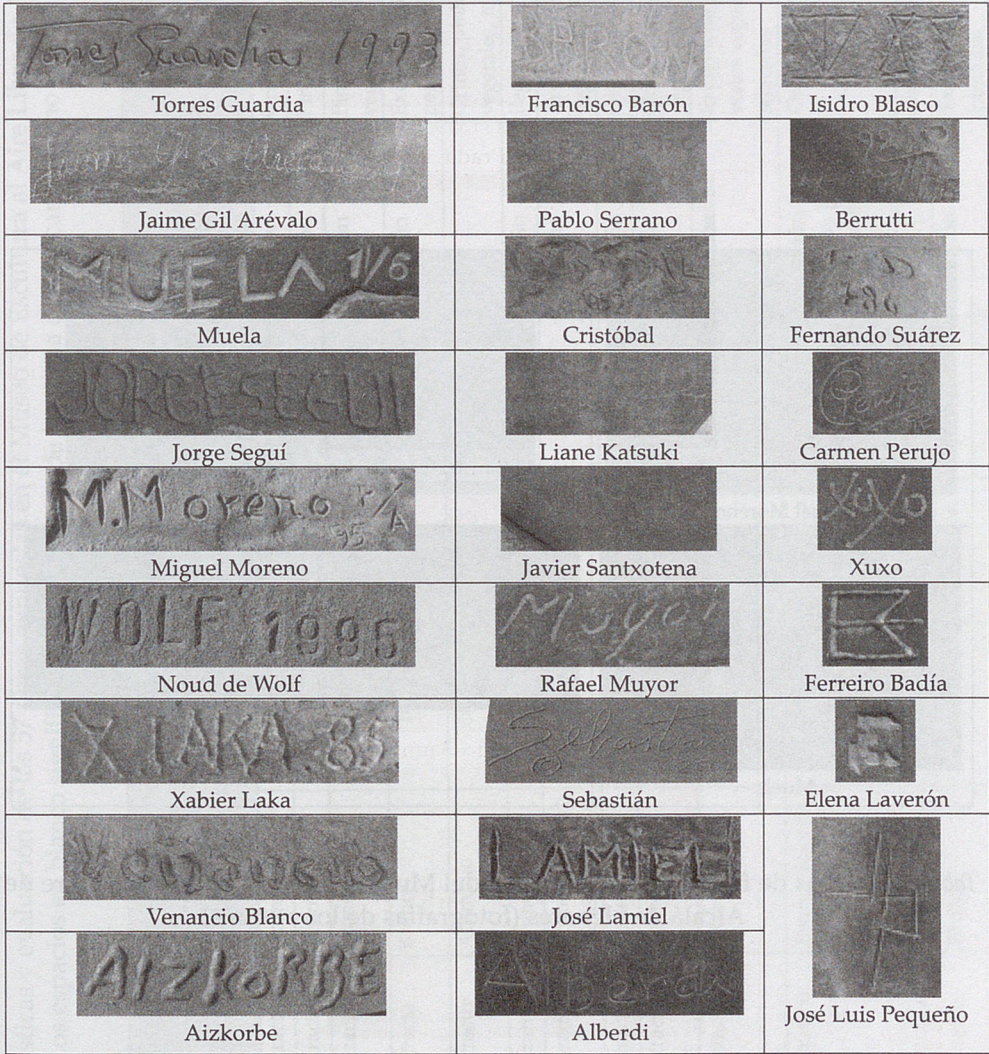 Torres Guardia 1993
BARON
Torres Guardia
Francisco Barón
Isidro Blasco
Jaime Gil Arévalo
Pablo Serrano
Berrutti
MUELA 1/6
Muela
Cristóbal
Fernando Suárez
JORGE SEGUI
Jorge Seguí
Liane Katsuki
Carmen Perujo
M.Moreno P/A
95
XuXo
Miguel Moreno
Javier Santxotena
Xuxo
WOLF 1995
Muyor
Noud de Wolf
Rafael Muyor
Ferreiro Badía
X LAKA. 85
Xabier Laka
Sebastián
Elena Laverón
Venancio
LAMIEL
Venancio Blanco
José Lamiel
AIZKORBE
Alberdi
José Luis Pequeño
Aizkorbe
Alberdi